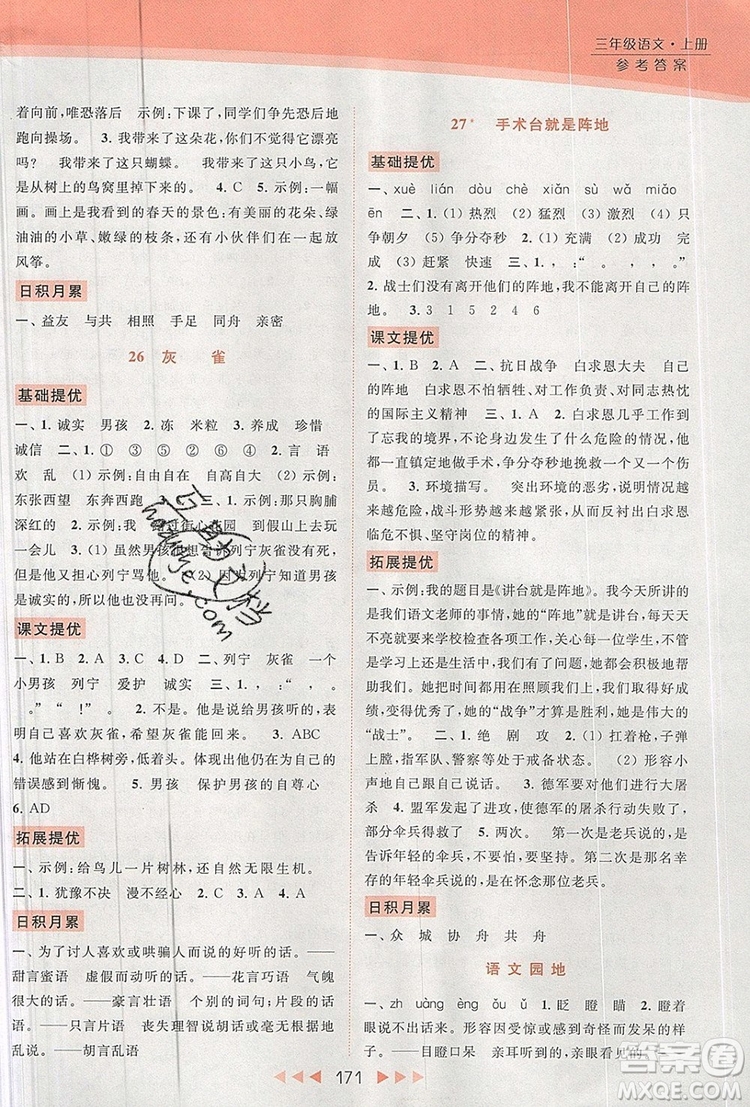 三年级语文·上册
参考答案
着向前，唯恐落后　示例：下课了，同学们争先恐后地
跑向操场。　3. 我带来了这朵花，你们觉得它漂亮
吗？　我带来了这只蝴蝶。　我带来了这只小鸟，我
是从树上的鸟窝里得来的　4. C　5. 示例：一幅
画。画上是我看到的春天的景色：有美丽的花朵、绿
油油的小草、嫩绿的枝条，还有小伙伴们在一起放
风筝。
日积月累
一、益友　与共　相照　手足　同舟　亲密
26　灰　雀
基础提优
一、1. 诚实　男孩　2. 冻　米粒　3. 养成　珍惜
诚信　二、1. ①　③　②　④　⑤　2. 言　语
欢　乱　(1) 示例：自由自在　自高自大　(2) 示例：
东张西望　东奔西跑　三、1. 示例：那只胸脯
深红的　2. 示例：我　路过街心花园　到假山上去玩
一会儿　3. (1) 虽然男孩很想告诉列宁灰雀没有死，
但是他又担心列宁骂他。　(2) 因为列宁知道男孩
是诚实的，所以他没再问。
课文提优
一、1. B　2. A　3. A　4. C　二、列宁　灰雀　一个
小男孩　列宁　爱护　诚实　三、1. ，：“　，
。”　“　！”　。　2. 不是。他是说给男孩听的，表
明自己喜欢灰雀，希望灰雀能回来。　3. ABC
4. 他站在白桦树旁，低着头。　因为他在为自己的
错误感到惭愧。　5. 男孩　保护男孩的自尊心
6. AD
拓展提优
一、示例：给鸟儿一片树林，还大自然无限生机。
二、1. 犹豫不决　漫不经心　2. C　3. A　4. A
日积月累
一、为了讨人喜欢或哄骗人而说的好听的话。——
甜言蜜语　虚假而动听的话。——花言巧语　气魄
很大的话。——豪言壮语　个别的词句；片段的话。
——只言片语　丧失理智说的话；毫无根据，胡乱
说的话。——胡言乱语
27*　手术台就是阵地
基础提优
一、xuè　lián　dòu　chè　xiǎn　sù　wǎ　miǎo
ēn　二、1. (1) 热烈　(2) 猛烈　(3) 激烈　(4) 只
争朝夕　(5) 争分夺秒　2. (1) 充满　(2) 成功　完
成　(3) 赶紧　快速　三、1. ：“　，　，　，　。”
2. 战士们没有离开他们的阵地，我没有办法离开我的
阵地。　3. 3　1　5　2　4　6
课文提优
一、1. B　2. A　二、抗日战争　白求恩大夫　自己
的阵地　白求恩不怕牺牲、对工作负责、对同志热忱
的国际主义精神　三、1. 2. 白求恩几乎工作到了
忘我的境界，不论外面发生了什么危险的情况，他都
一直镇定地做手术，争分夺秒地抢救病人，说明他是
临危不惧的。　3. 环境描写。　突出环境的恶劣，说明情况越来
越危险，战斗形势越来越紧张，从而反衬出白求恩
临危不惧、坚守岗位的精神。
拓展提优
一、示例：我的题目是《讲台就是阵地》。我今天讲的
是我们语文老师的事情，她的“阵地”就是讲台，每天
不亮就要来学校检查各项工作，关心每一个同学，无
是学习上还是生活上，遇到困难，她都会尽力帮助
我们。她把时间都用在照顾我们上，她把后进生都
变得优秀了，她的“战争”才算是胜利。她是一名真正的
“战士”。　二、1. 绝　剧　攻　2. (1) 扛着枪，子弹
上膛，指军队、警察等处于戒备状态。　(2) 形容小
声地自己跟自己说话。　3. 德军要进行大屠
杀　4. 盟军发起了进攻，使德军的屠杀行动还没有
进行就失败了　5. 两次。　第一次是老兵说的，是
告诉年轻的伞兵，不要怕。　第二次是最后幸存
的年轻伞兵说的，是在怀念那位老兵。
日积月累
一、众　城　协　舟　共　舟
语文园地
一、zh　uàng　èng　ǒu　ǔ　二、1. 眨　瞪　瞄　2. 瞪着
眼说不出话来。形容因受惊或感到惊奇而目瞪口呆的
——目瞪口呆　亲耳听到的，亲眼看见的
171
答案圈
MXQE.COM